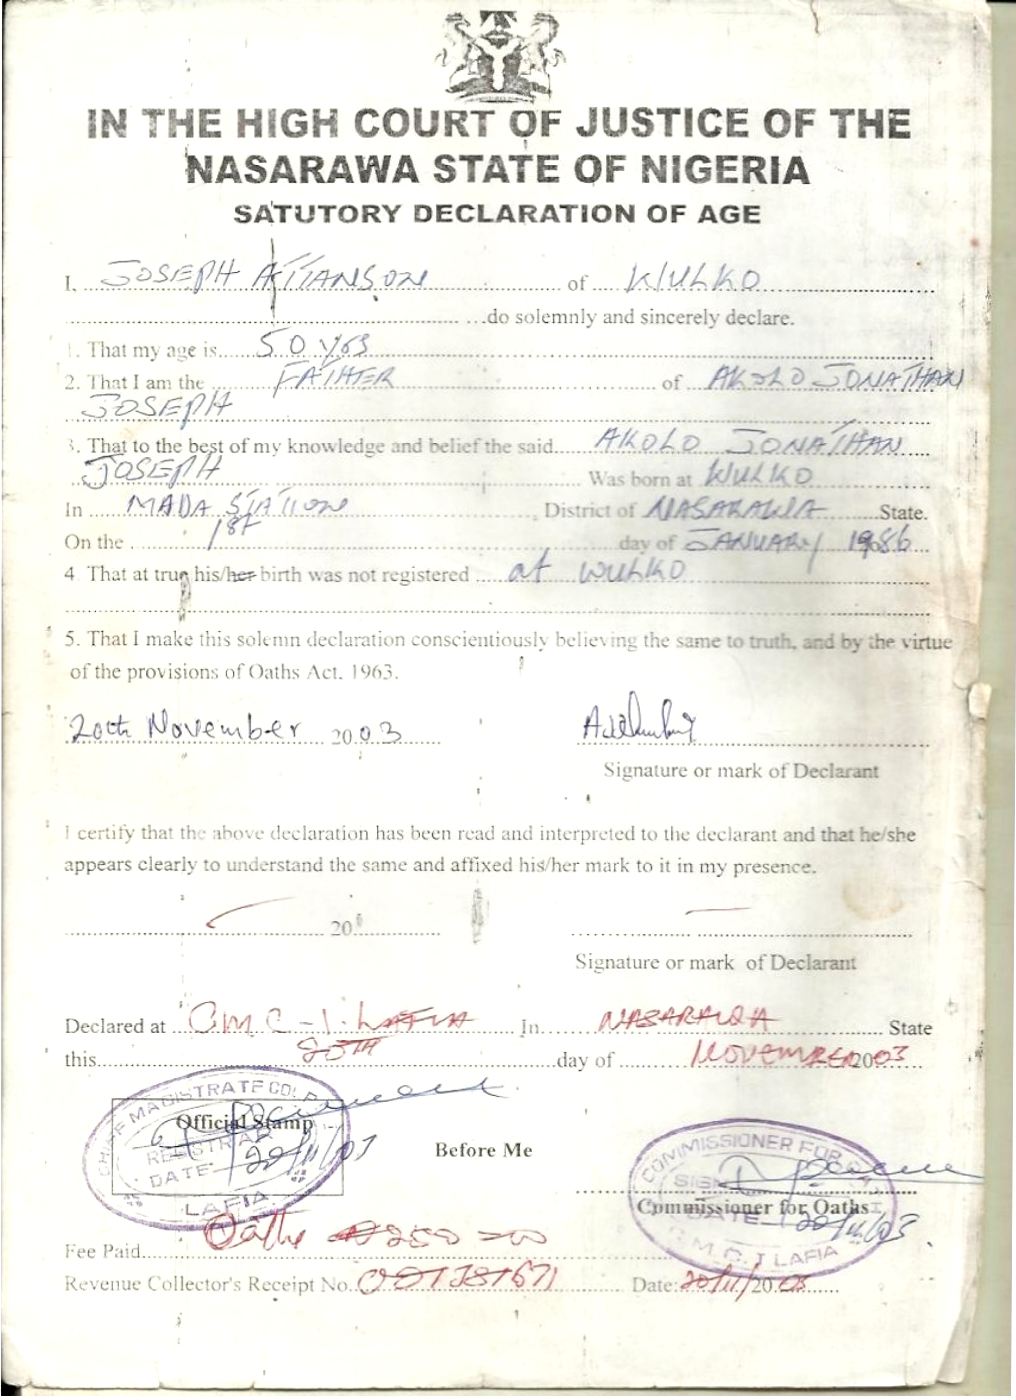 IN THE HIGH COURT OF JUSTICE OF THE
NASARAWA STATE OF NIGERIA
SATUTORY DECLARATION OF AGE
I, JOSEPH ATTANSON of WULKO
do solemnly and sincerely declare.
1. That my age is 50 yrs
2. That I am the FATHER of AKOLO JONATHAN
JOSEPH
3. That to the best of my knowledge and belief the said AKOLO JONATHAN
JOSEPH Was born at WULKO
In MADA STATION District of NASARAWA State.
On the 1st day of JANUARY 1986
4 That at true his/her birth was not registered at WULKO
5. That I make this solemn declaration conscientiously believing the same to truth, and by the virtue
of the provisions of Oaths Act. 1963.
20th November 2003
Signature or mark of Declarant
I certify that the above declaration has been read and interpreted to the declarant and that he/she
appears clearly to understand the same and affixed his/her mark to it in my presence.
20
Signature or mark of Declarant
Declared at C.M.C-1. LAFIA In NASARAWA State
this 20TH day of NOVEMBER 2003
CHIEF MAGISTRATE
Official Stamp
REGISTRAR
DATE 20/11/03
LAFIA
Before Me
COMMISSIONER FOR
SIGN
Commissioner for Oaths
DATE 20/11/03
C.M.C. I LAFIA
Fee Paid Oaths
Revenue Collector's Receipt No. Date: 20/11/2003